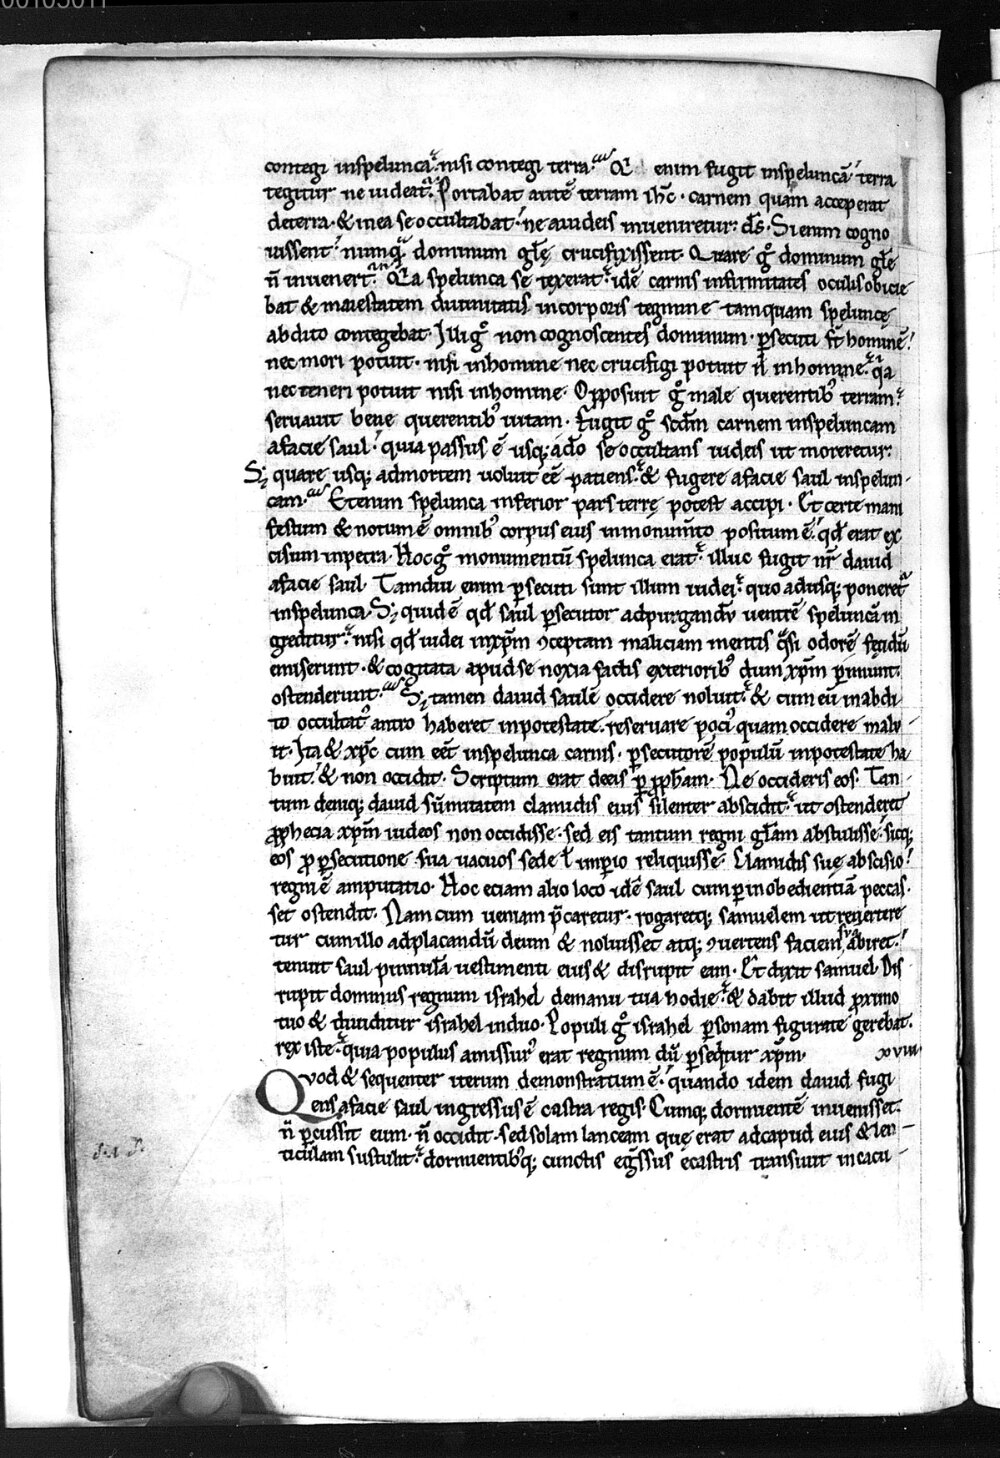 00105011
contegi inspeluncā. nisi contegi terra. Q̄ enim fugit inspeluncā terra
tegitur ne uideat᷑. Portabat autē terram ihc̄. carnem quam acceperat
deterra. & inea se occultabat. ne aiudeis inueniretur. d̄s. Si enim cogno
uissent. numq̄ dominum glę̄ crucifixissent. Quare gͦ dominum glę̄
n̄ inuener̄t. Q̄a spelunca se texerat. idē carnis infirmitates oculis obicie
bat & maiestatem diuinitatis incorporis tegmine tamquam speluncę
abdito contegebat. Illi gͦ non cognoscentes dominum. ꝑsecuti s̄t hominē.
nec mori potuit. nisi inhomine nec crucifigi potuit n̄ inhomine. q̄a
nec teneri potuit nisi inhomine. Opposuit gͦ male querentibꝰ terram.
seruauit bene querentibꝰ uitam. Fugit gͦ scdm̄ carnem inspeluncam
afacie saul. quia passus ē usq; adō se occultans iudeis ut moreretur.
S; quare usq; admortem uoluit eē patiens. & fugere afacie saul inspelun-
cam. Etenim spelunca inferior pars terrę potest accipi. Et certe mani
festum & notum ē omnibꝰ corpus eius inmonum̄to positum ē. qd̄ erat ex
cisum inpetra. Hoc gͦ monumentū spelunca erat. illuc fugit nr̄ dauid
afacie saul Tamdiu enim ꝑsecuti sunt illum iudei. quo adusq; poneret᷑
inspelunca. S; quid ē qd̄ saul ꝑsecutor adpurgandū uentrē speluncā in
greditur. nisi qd̄ iudei inxp̄m ꝯceptam maliciam mentis q̄si odorē fętidū
emiserunt. & cogitata apud se noxia factis exterioribꝰ dum xp̄m ꝑimunt.
ostenderunt. S; tamen dauid saulē occidere noluit. & cum eū inabdi
to occultatꝰ antro haberet inpotestate. reseruare pociꝰ quam occidere malu-
it. Ita & xp̄c cum eēt inspelunca carnis. ꝑsecutorē populū inpotestate ha
buit. & non occidit. Scriptum erat deeis ꝑ ꝓph̄am. Ne occideris eos. Tan-
tum deniq; dauid sūmitatem clamidis eius silenter abscidit. ut ostenderet
ꝓphecia xp̄m iudeos non occidisse. sed eis tantum regni glam̄ abstulisse. sicq;
eos ꝓ ꝑsecutione sua uacuos sede ł imꝑio reliquisse. Clamidis suę abscisio
regni ē amputatio. Hoc eciam alio loco idē saul cum ꝑinobedientiā peccas-
set ostendit. Nam cum ueniam p̄caretur. rogaretq; samuelem ut reuertere
tur cumillo adplacandū deum & noluisset atq; ꝯuertens faciem sua abiret.
tenuit saul pinnulā uestimenti eius & disrupit eam. Et dixit samuel. Dis
rupit dominus regnum israhel demanu tua hodie. & dabit illud ꝓximo
tuo & diuiditur israhel induo. Populi gͦ israhel ꝑsonam figurate gerebat.
rex iste. quia populus amissurꝰ erat regnum dū ꝑseq̄tur xp̄m. xviii
Quod & sequenter iterum demonstratum ē. quando idem dauid fugi
ens afacie saul ingressus ē castra regis. Cumq; dormientē inuenisset.
n̄ ꝑcussit eum. n̄ occidit. sed solam lanceam quę erat adcapud eius & len-
ticulam sustulit. dormientibꝰq; cunctis eg̃ssus ecastris transiuit incacu